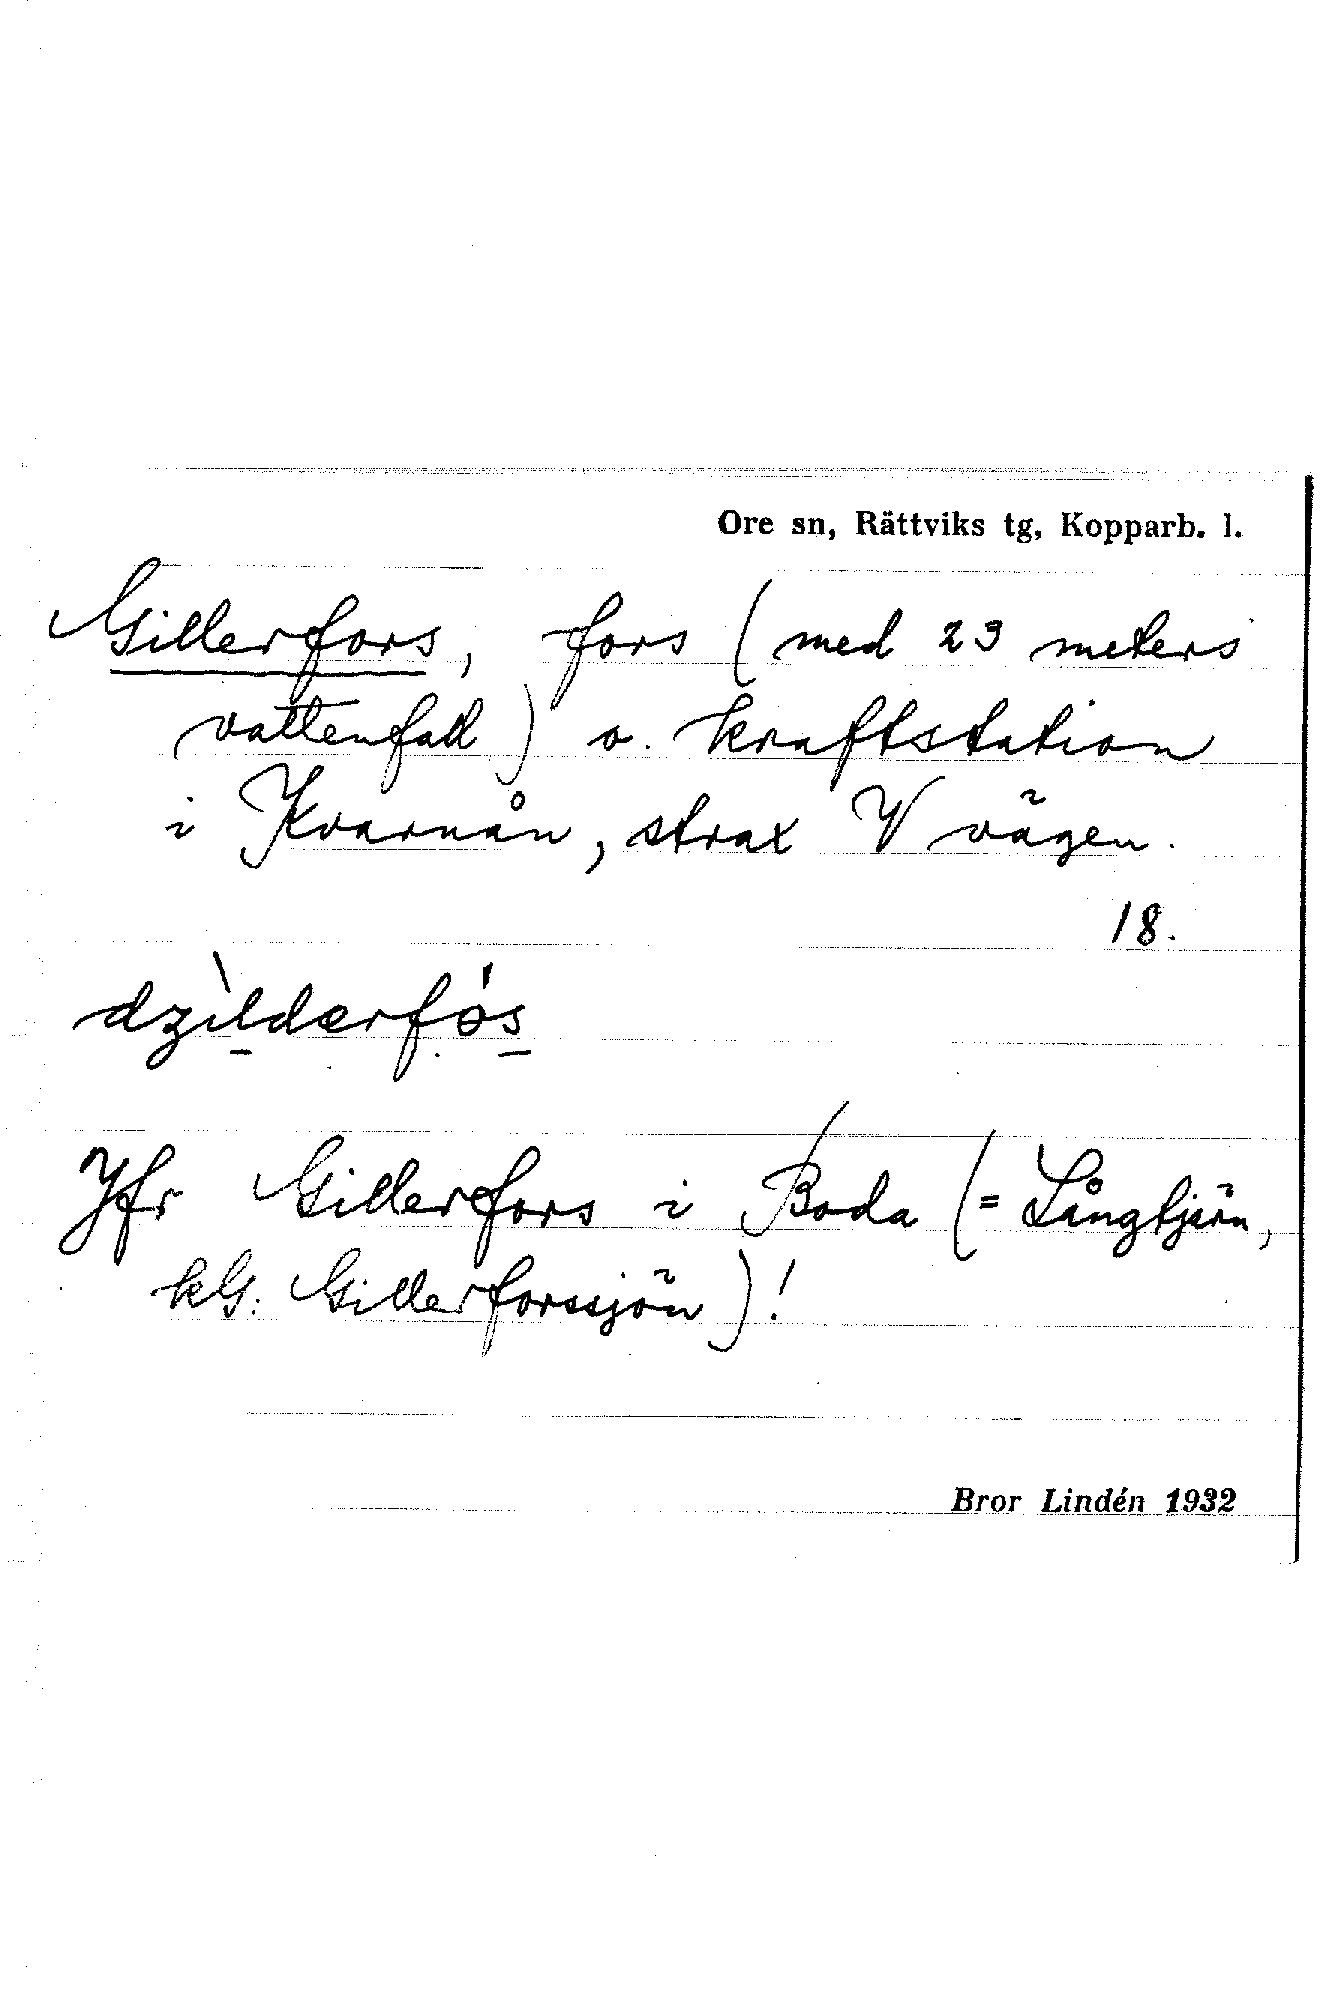 Ore sn, Rättviks tg, Kopparb. l.
Gillerfors, fors (med 23 meters
vattenfall) o. kraftstation
i Kvarnån, strax V vägen.
18.
dzìlderfós
Jfr Gillerfors i Boda (= Långtjärn,
kG: Gillerforssjön)!
Bror Lindén 1932